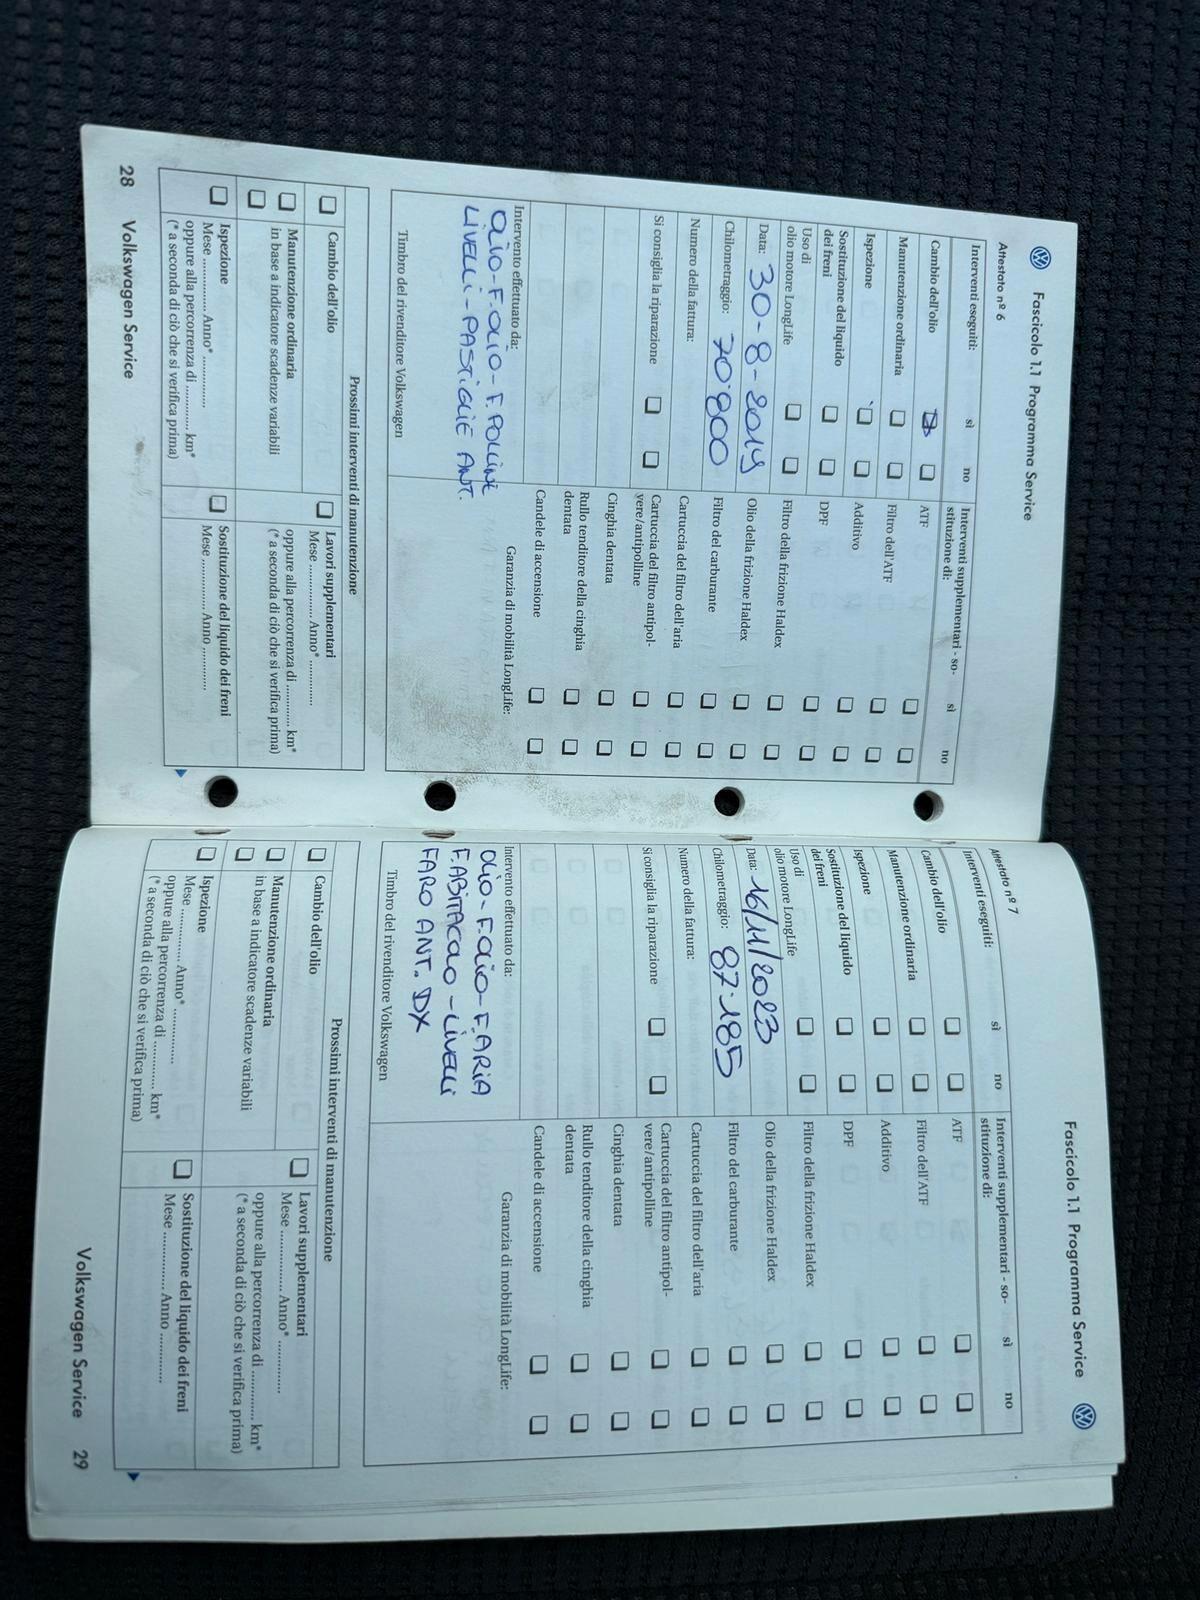 Fascicolo 1.1 Programma Service
Attestato nº 6
Interventi eseguiti:
sì
no
Cambio dell'olio
Manutenzione ordinaria
Ispezione
Sostituzione del liquido
dei freni
Uso di
olio motore LongLife
Data: 30-8-2019
Chilometraggio: 70.800
Numero della fattura:
Si consiglia la riparazione
Interventi supplementari - so-
stituzione di:
sì
no
ATF
Filtro dell'ATF
Additivo
DPF
Filtro della frizione Haldex
Olio della frizione Haldex
Filtro del carburante
Cartuccia del filtro dell'aria
Cartuccia del filtro antipol-
vere/antipolline
Cinghia dentata
Rullo tenditore della cinghia
dentata
Candele di accensione
Intervento effettuato da:
OLIO-F.OLIO-F.POLLINE
LIVELLI-PASTIGLIE ANT.
Timbro del rivenditore Volkswagen
Garanzia di mobilità LongLife:
Prossimi interventi di manutenzione
Cambio dell'olio
Manutenzione ordinaria
in base a indicatore scadenze variabili
Lavori supplementari
Mese .............. Anno* ..............
oppure alla percorrenza di ............ km*
(* a seconda di ciò che si verifica prima)
Ispezione
Mese .............. Anno* ..............
oppure alla percorrenza di ............ km*
(* a seconda di ciò che si verifica prima)
Sostituzione del liquido dei freni
Mese .............. Anno ..............
28 Volkswagen Service
Fascicolo 1.1 Programma Service
Attestato nº 7
Interventi eseguiti:
sì
no
Cambio dell'olio
Manutenzione ordinaria
Ispezione
Sostituzione del liquido
dei freni
Uso di
olio motore LongLife
Data: 16/11/2023
Chilometraggio: 87.185
Numero della fattura:
Si consiglia la riparazione
Interventi supplementari - so-
stituzione di:
sì
no
ATF
Filtro dell'ATF
Additivo
DPF
Filtro della frizione Haldex
Olio della frizione Haldex
Filtro del carburante
Cartuccia del filtro dell'aria
Cartuccia del filtro antipol-
vere/antipolline
Cinghia dentata
Rullo tenditore della cinghia
dentata
Candele di accensione
Intervento effettuato da:
OLIO-F.OLIO-F.ARIA
F.ABITACOLO-LIVELLI
FARO ANT. DX
Timbro del rivenditore Volkswagen
Garanzia di mobilità LongLife:
Prossimi interventi di manutenzione
Cambio dell'olio
Manutenzione ordinaria
in base a indicatore scadenze variabili
Lavori supplementari
Mese .............. Anno* ..............
oppure alla percorrenza di ............ km*
(* a seconda di ciò che si verifica prima)
Ispezione
Mese .............. Anno* ..............
oppure alla percorrenza di ............ km*
(* a seconda di ciò che si verifica prima)
Sostituzione del liquido dei freni
Mese .............. Anno ..............
Volkswagen Service 29